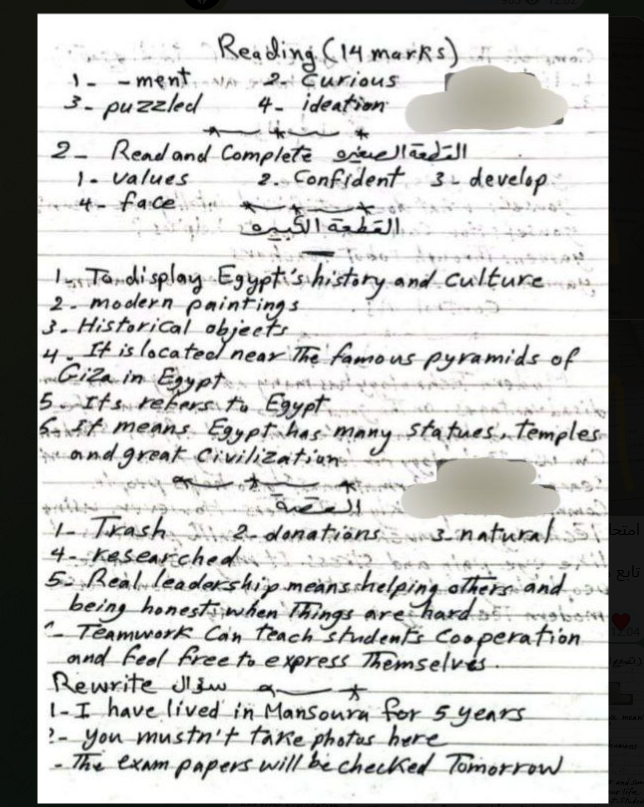 Reading (14 marks)
1- -ment 2- Curious
3- puzzled 4- ideation
2- Read and Complete القطعة الصغيره
1- values 2. Confident 3- develop
4- face
القطعة الكبيره
1- To display Egypt's history and culture
2- modern paintings
3- Historical objects
4- It is located near The famous pyramids of
Giza in Egypt
5- Its refers to Egypt
6- It means Egypt has many statues, temples
and great Civilization
القصة
1- Trash 2- donations 3. natural
4- researched
5- Real leadership means helping others and
being honest when Things are hard
- Teamwork Can teach students Cooperation
and feel free to express Themselves.
Rewrite سؤال
1- I have lived in Mansoura for 5 years
2- you mustn't take photos here
- The exam papers will be checked Tomorrow